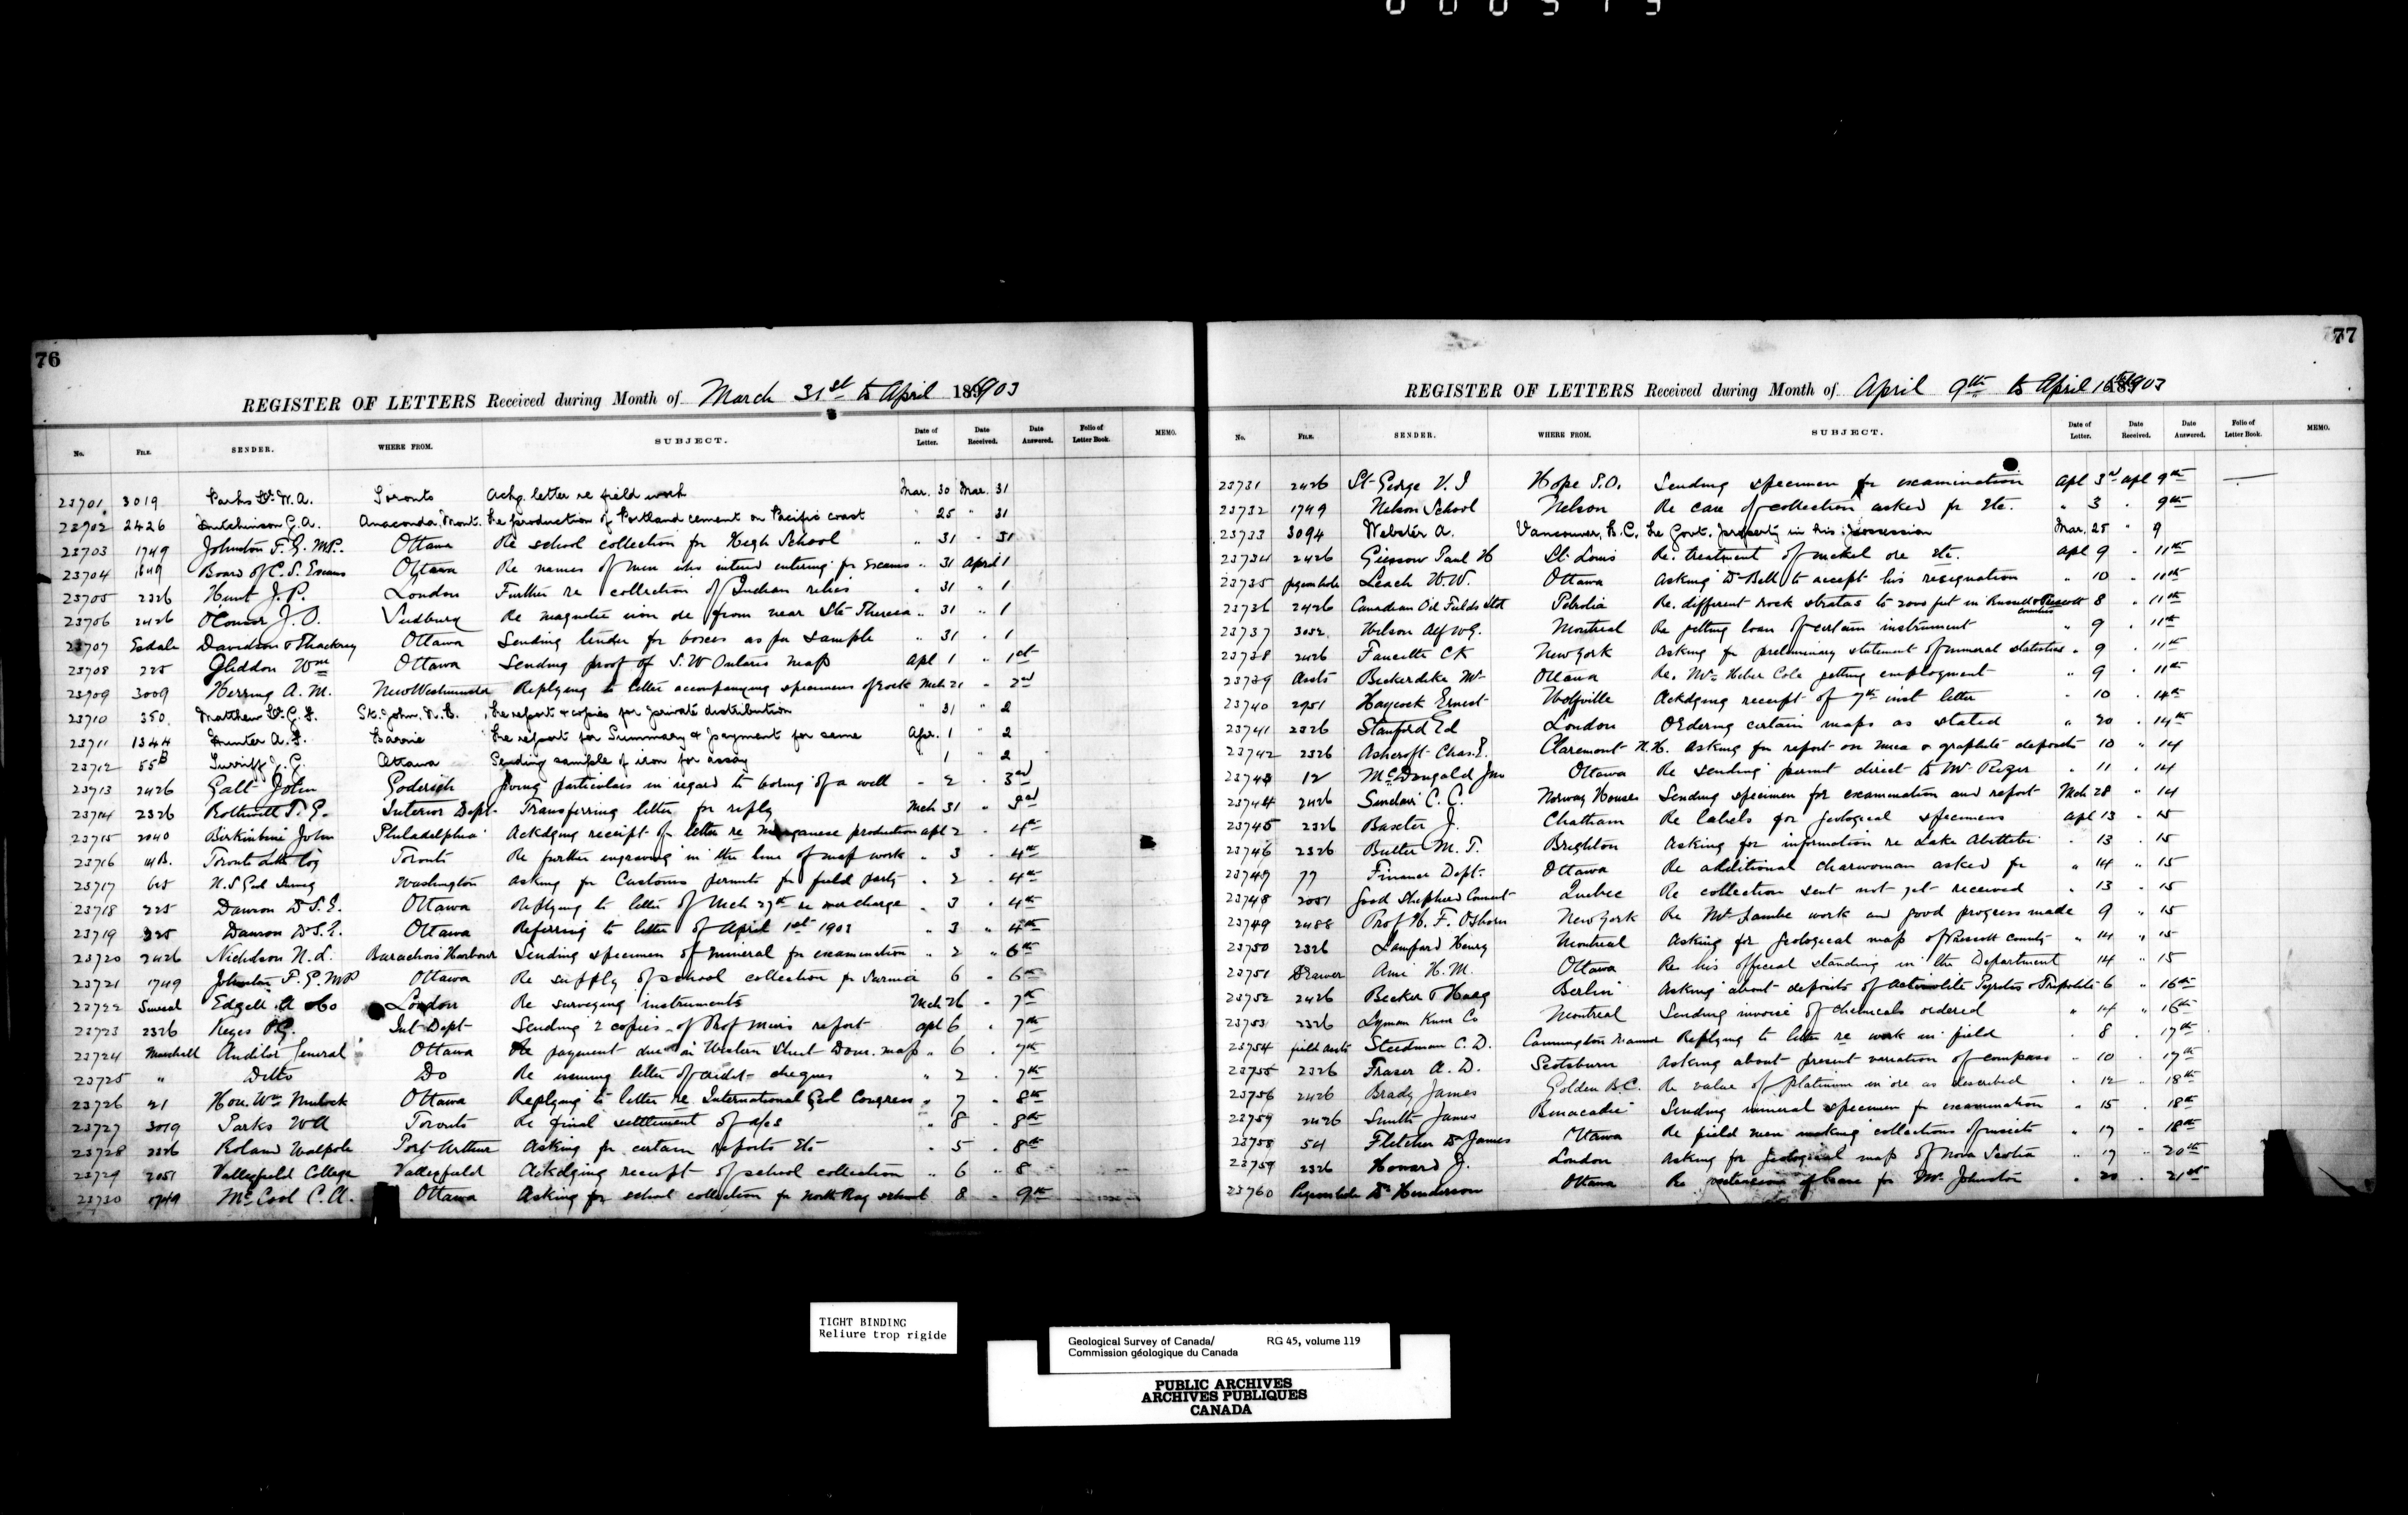 76
REGISTER OF LETTERS Received during Month of March 31st to April 1903
No. FILE. SENDER. WHERE FROM. SUBJECT. Date of Letter. Date Received. Date Answered. Folio of Letter Book. MEMO.
23701 3019 Parks Dr. W.A. Toronto Ackg. letter re field work Mar. 30 Mar. 31
23702 2426 Hutchinson G.A. Anaconda, Mont. Re production of Portland cement on Pacific coast " 25 " 31
23703 1749 Johnston T.G. M.P. Ottawa Re school collection for High School " 31 " 31
23704 1849 Board of C.S. Exams Ottawa Re names of men who intend entering for Exams " 31 April 1
23705 2326 Hunt J.P. London Further re collection of Indian relics " 31 " 1
23706 2426 O'Connor J.O. Sudbury Re magnetic iron ore from near Ste Theresa " 31 " 1
23707 Esdale Davidson & Thackray Ottawa Sending tender for boxes as per sample " 31 " 1
23708 225 Gliddon Wm Ottawa Sending proof of S.W Ontario map Apl 1 " 1st
23709 3009 Herring A.M. New Westminster Replying to letter accompanying specimens of rock Mch 21 " 2nd
23710 350 Matthew Dr. G.F. St. John, N.B. Re report & copies for private distribution " 31 " 2
23711 1344 Hunter A.F. Barrie Re report for Summary & payment for same Apr. 1 " 2
23712 55B J.G. Ottawa Sending sample of iron for assay 1 " 2
23713 2426 Galt John Goderich Giving particulars in regard to boring of a well " 2 " 3rd
23714 2326 Rothwell T.G. Interior Dept. Transferring letter for reply Mch 31 " 3rd
23715 2040 Birkinbine John Philadelphia Ackdging receipt of letter re Manganese production apl 2 " 4th
23716 Toronto Lith Coy Toronto Re further engraving in the line of map work " 3 " 4th
23717 65 U.S Geol Survey Washington Asking for Customs permits for field party " 2 " 4th
23718 225 Dawson Dr S.E. Ottawa Replying to letter of Mch 27th re overcharge " 3 " 4th
23719 225 Dawson Dr S.E. Ottawa Referring to letter of April 1st 1903 " 3 " 4th
23720 2426 Nicholson N.L. Barachois Harbour Sending specimen of mineral for examination " 2 " 6th
23721 1749 Johnston T.G. MP Ottawa Re supply of school collection for Sarnia 6 " 6th
23722 Edgell A & Co London Re surveying instruments Mch 26 " 7th
23723 2326 Keyes P.G. Int Dept Sending 2 copies of Prof Miers report apl 6 " 7th
23724 Marshall Auditor General Ottawa Re payment due in Western Sheet Dom. map " 6 " 7th
23725 " Ditto Do Re issuing letter of credit cheques " 2 " 7th
23726 21 Hon. Wm Mulock Ottawa Replying to letter re International Geol Congress " 7 " 8th
23727 3019 Parks WA Toronto Re final settlement of a/cs " 8 " 8th
23728 2326 Roland Walpole Port Arthur Asking for certain reports Etc " 5 " 8th
23729 2051 Valleyfield College Valleyfield Ackdging receipt of school collection " 6 " 8
23730 1749 McCool C.A. Ottawa Asking for school collection for North Bay school 8 " 9th
77
REGISTER OF LETTERS Received during Month of April 9th to April 1903
No. FILE. SENDER. WHERE FROM. SUBJECT. Date of Letter. Date Received. Date Answered. Folio of Letter Book. MEMO.
23731 2426 St George V.J Hope S.O. Sending specimen for examination apl 3rd apl 9th
23732 1749 Nelson School Nelson Re case of collection asked for Etc. " 3 " 9th
23733 3094 Webster A. Vancouver, B.C. Re Govt. property in his possession Mar. 25 " 9
23734 2426 Paul H St. Louis Re. treatment of nickel ore Etc. apl 9 " 11th
23735 pigeonhole Leach W.W. Ottawa Asking Dr Bell to accept his resignation " 10 " 11th
23736 2426 Canadian Oil Fields Ltd Petrolia Re. different rock stratas to 2000 feet in Russell & Prescott counties 8 " 11th
23737 3052 Wilson Alf W G. Montreal Re getting loan of certain instrument " 9 " 11th
23738 2426 Faucette CK New York Asking for preliminary statement of mineral statistics " 9 " 11th
23739 Assts Bickerdike Mr Ottawa Re. Mr Heber Cole getting employment " 9 " 11th
23740 2951 Haycock Ernest Wolfville Ackdging receipt of 7th inst letter " 10 " 14th
23741 2326 Stanford Ed London Ordering certain maps as stated " 20 " 14th
23742 2326 Ashcroft Chas. E. Claremont N.H. Asking for report on mica & graphite deposits 10 " 14
23743 12 McDougald Jno Ottawa Re sending permit direct to Mr " 11 " 14
23744 2426 Sinclair C.C. Norway House Sending specimen for examination and report Mch 28 " 14
23745 2326 Baxter J. Chatham Re labels for geological specimens apl 13 " 15
23746 2326 Butler M.T. Brighton Asking for information re Lake Abittibi " 13 " 15
23747 77 Finance Dept. Ottawa Re additional charwoman asked for " 14 " 15
23748 2051 Good Shepherd Convent Quebec Re collection sent not yet received " 13 " 15
23749 2488 Prof H.F. Osborn New York Re Mr Lambe work and good progress made 9 " 15
23750 2326 Lamford Henry Montreal Asking for geological map of Prescott County " 14 " 15
23751 Drawer Ami H.M. Ottawa Re his official standing in the Department 14 " 15
23752 2426 Becker & Haag Berlin Asking about deposits of Actinolite Pyrites & Tripolite 6 " 16th
23753 2326 Lyman Knox Co Montreal Sending invoice of chemicals ordered " 14 " 16th
23754 field assts Steedman C.D. Cannington Manor Replying to letter re work in field " 8 " 17th
23755 2326 Fraser A.D. Scotsburn Asking about present variation of compass " 10 " 17th
23756 2426 Brady James Golden B.C. Re value of platinum in ore as described " 12 " 18th
23757 2426 Smith James Benacadie Sending mineral specimen for examination " 15 " 18th
23758 54 Fletcher Dr James Ottawa Re field men making collections of insects " 17 " 18th
23759 2326 Howard J. London Asking for geological map of Nova Scotia " 17 " 20th
23760 Pigeonhole Dr Henderson Ottawa Re extension of leave for Mr Johnston " 20 " 21st
TIGHT BINDING
Reliure trop rigide
Geological Survey of Canada/ RG 45, volume 119
Commission géologique du Canada
PUBLIC ARCHIVES
ARCHIVES PUBLIQUES
CANADA